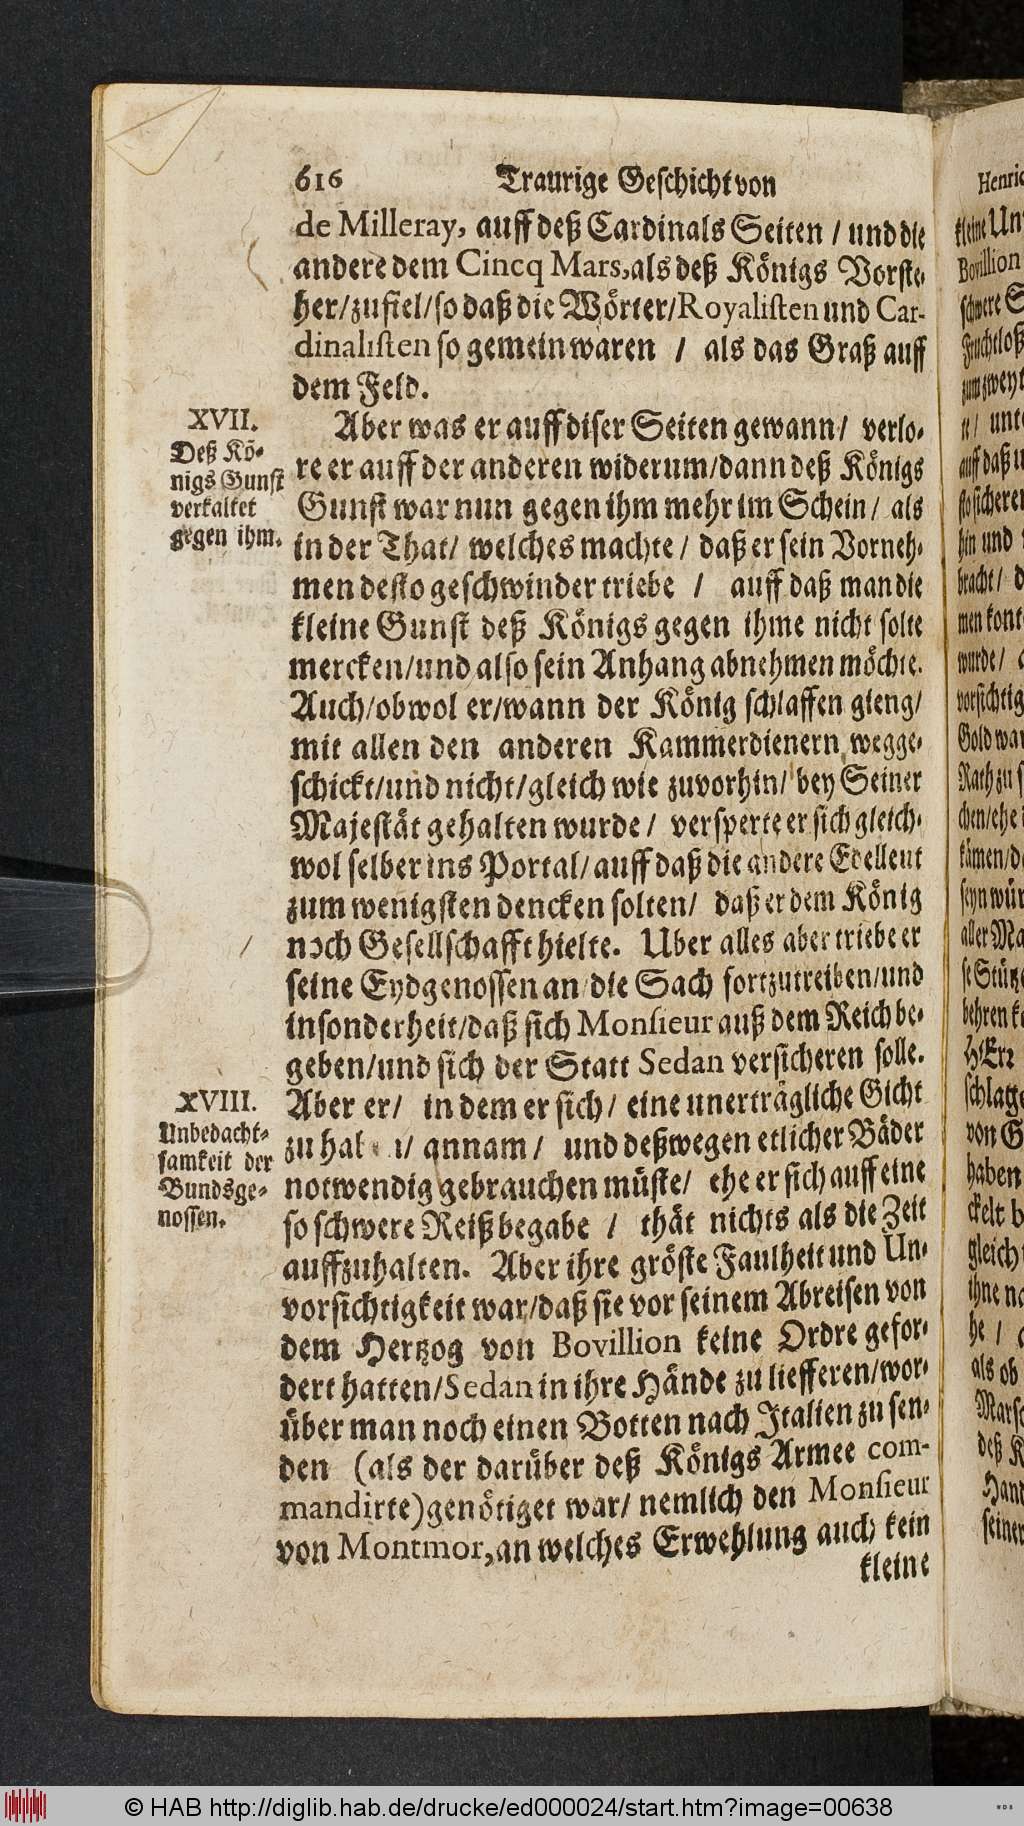 616 Traurige Geschicht von
de Milleray, auff deß Cardinals Seiten / und die
andere dem Cincq Mars, als deß Königs Vorste-
her/zufiel/so daß die Wörter/Royalisten und Car-
dinalisten so gemein waren / als das Graß auff
dem Feld.
XVII.
Deß Kö-
nigs Gunst
verkaltet
gegen ihm.
Aber was er auff diser Seiten gewann/ verlo-
re er auff der anderen widerum/dann deß Königs
Gunst war nun gegen ihm mehr im Schein/ als
in der That/ welches machte/ daß er sein Vorneh-
men desto geschwinder triebe / auff daß man die
kleine Gunst deß Königs gegen ihme nicht solte
mercken/und also sein Anhang abnehmen möchte.
Auch/obwol er/wann der König schlaffen gieng/
mit allen den anderen Kammerdienern wegge-
schickt/und nicht/gleich wie zuvorhin/ bey Seiner
Majestät gehalten wurde/ versperte er sich gleich-
wol selber ins Portal/auff daß die andere Edelleut
zum wenigsten dencken solten/ daß er dem König
noch Gesellschafft hielte. Uber alles aber triebe er
seine Eydgenossen an/die Sach fortzutreiben/und
insonderheit/daß sich Monsieur auß dem Reich be-
geben/und sich der Statt Sedan versicheren solle.
XVIII.
Unbedacht-
samkeit der
Bundsge-
nossen.
Aber er/ in dem er sich/ eine unerträgliche Gicht
zu haben/ annam/ und deßwegen etlicher Bäder
notwendig gebrauchen müste/ ehe er sich auff eine
so schwere Reiß begabe / thät nichts als die Zeit
auffzuhalten. Aber ihre gröste Faulheit und Un-
vorsichtigkeit war/daß sie vor seinem Abreisen von
dem Hertzog von Bovillion keine Ordre gefor-
dert hatten/Sedan in ihre Hände zu liefferen/wor-
über man noch einen Botten nach Italien zu sen-
den (als der darüber deß Königs Armee com-
mandirte) genötiget war/ nemlich den Monsieur
von Montmor, an welches Erwehlung auch kein
kleine
Henric
kleine Un
Bovillion
schwere S
Fruchtloß
zum zweyt
te/ unte
auff daß u
sto sicheren
hin und
bracht/ d
men kont
wurde/
vorsichtig
Gold war
Rath zu s
chen/ehe
kämen/d
seyn wür
aller Ma
se Stütz
behren k
HErr
schlage
von G
haben
ckelt b
gleich
ihne na
he /
als ob
Marsc
deß K
Hand
seiner
© HAB http://diglib.hab.de/drucke/ed000024/start.htm?image=00638